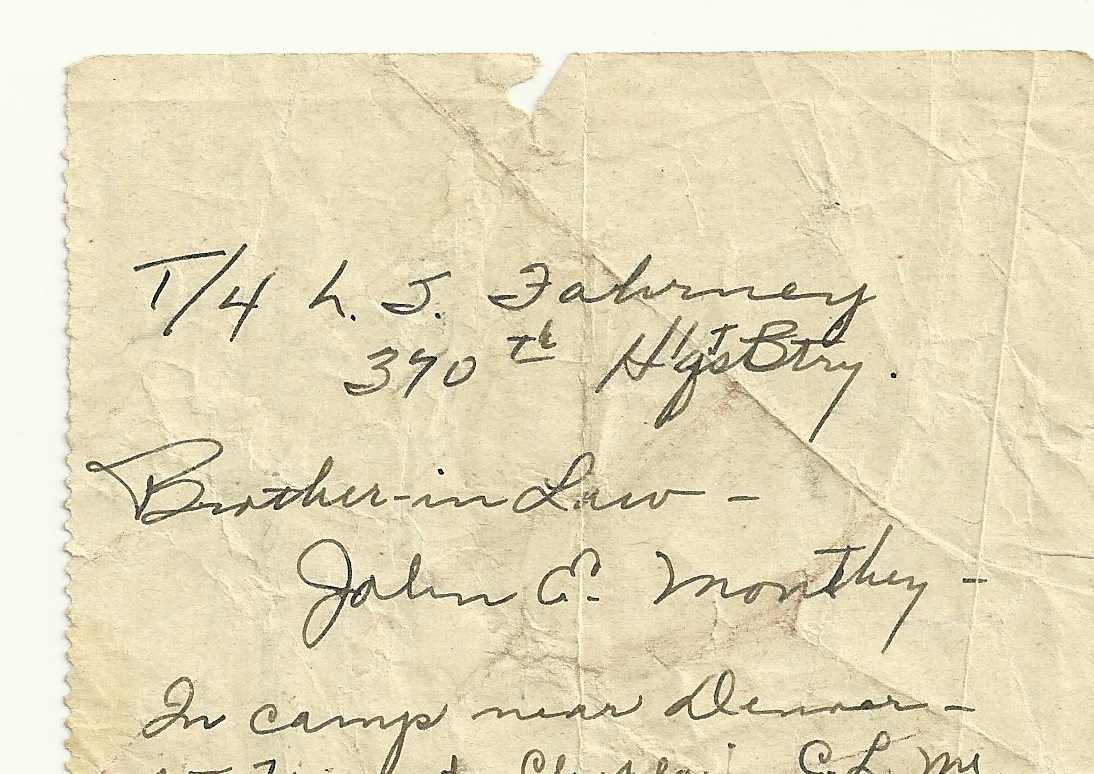 T/4 L. J. Fahrney
390th Hqs Btry.
Brother-in Law -
John E. Monthey -
In camp near Denver -
C. L. Mc